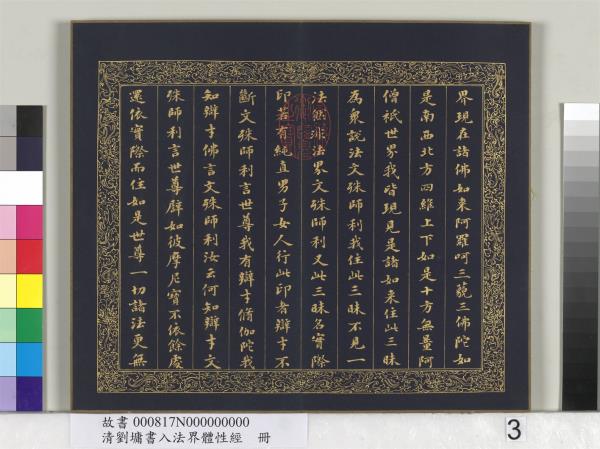 界現在諸佛如來阿羅呵三藐三佛陀如
是南西北方四維上下如是十方無量阿
僧祇世界我皆現見是諸如來住此三昧
為眾說法文殊師利我住此三昧不見一
法然非法界文殊師利又此三昧名實際
印若有純直男子女人行此印者辯才不
斷文殊師利言世尊我有辯才脩伽陀我
知辯才佛言文殊師利汝云何知辯才文
殊師利言世尊辟如彼摩尼寶不依餘處
還依實際而住如是世尊一切諸法更無
故書 000817N000000000
清劉墉書入法界體性經 冊
3